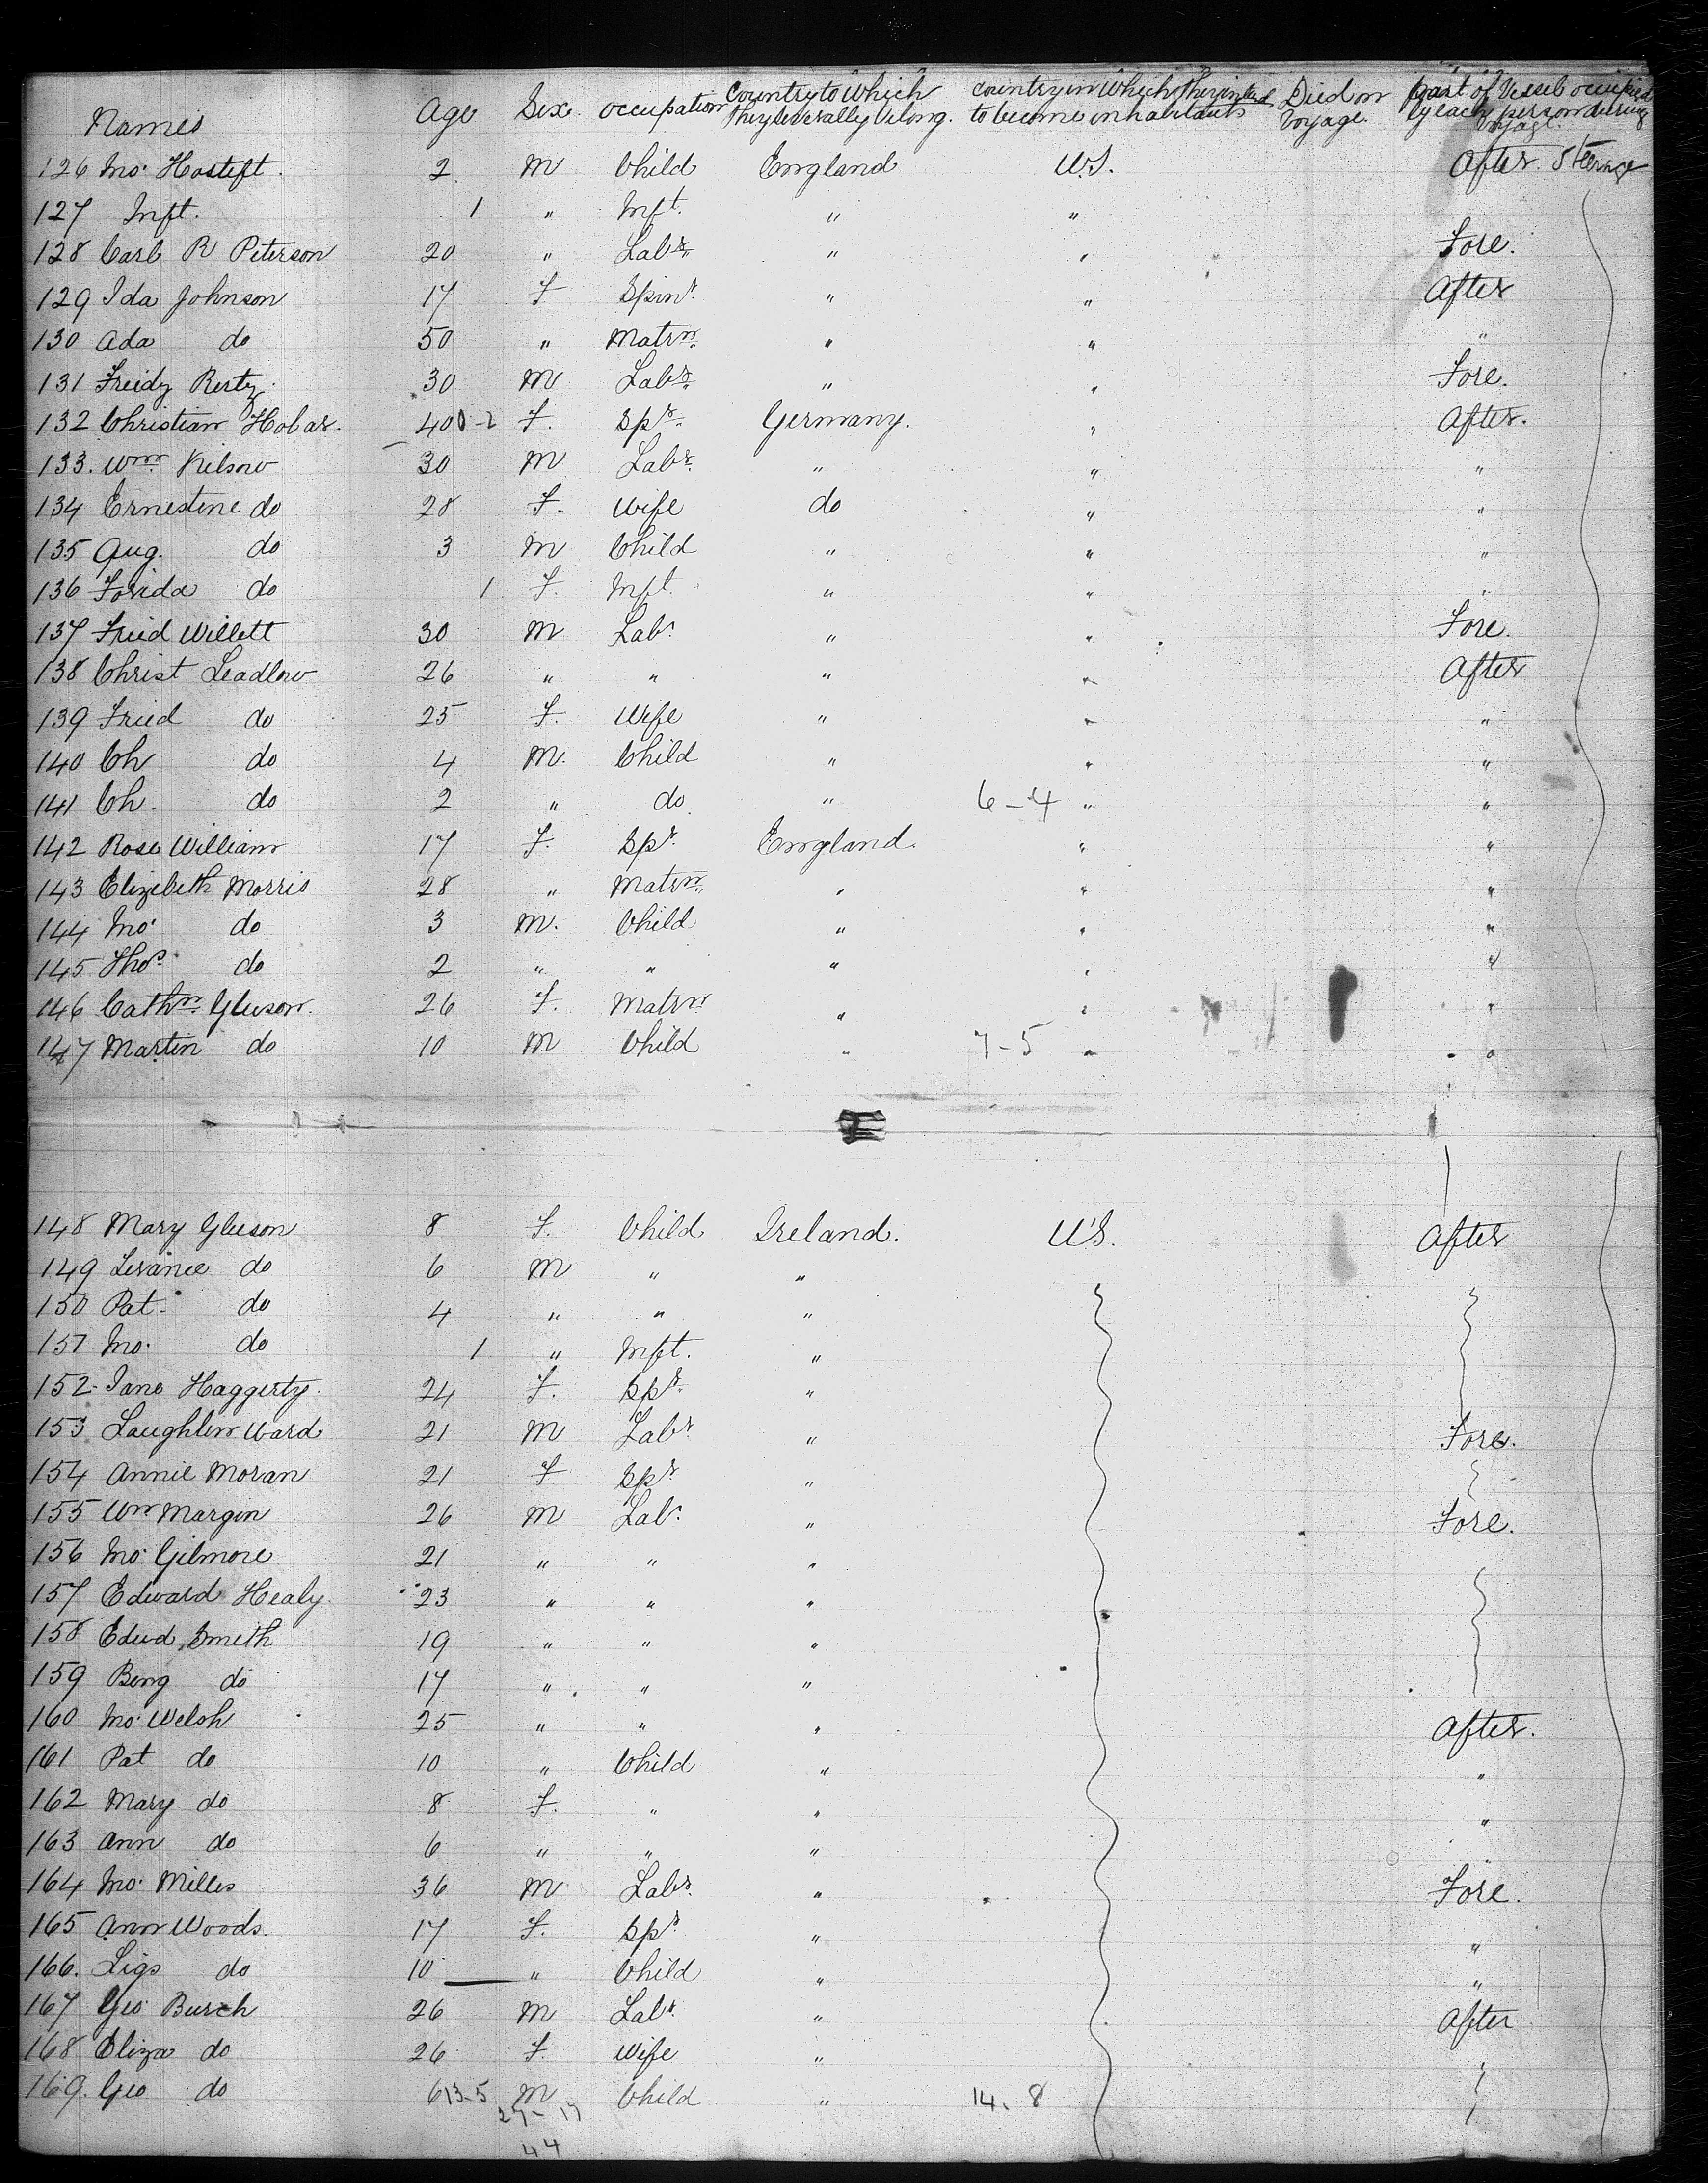 Names Age Sex occupation Country to Which they Severally belong. Country in Which they intend to become inhabitants Died on Voyage. part of Vessel occupied by each person during Voyage.
126 Jno. Hosteft. 2 M Child England U.S. After Steerage
127 Inft. 1 " Inft. " "
128 Carl R Peterson 20 " Labr. " " Fore.
129 Ida Johnson 17 F Spinr. " " After
130 Ada do 50 " Matrn. " " "
131 Freidy Rertz 30 M Labr. " " Fore.
132 Christian Hobar. 40 0-2 F. Spr. Germany. " After.
133. Wm. Kilsow 30 M Labr. " " "
134 Ernestine do 28 F. Wife do " "
135 Aug. do 3 M Child " " "
136 Forida do 1 F. Inft. " " "
137 Fried Willett 30 M Labr " " Fore.
138 Christ Leadlow 26 " " " " After
139 Fried do 25 F. Wife " " "
140 Ch do 4 M. Child " " "
141 Ch. do 2 " do " 6-4 " "
142 Rose William 17 F. Spr. England. " "
143 Elizibeth Morris 28 " Matrn. " " "
144 Jno. do 3 M. Child " " "
145 Thos. do 2 " " " " "
146 Cathn. Gleeson. 26 F. Matrn " " "
147 Martin do 10 M Child " 7-5 " "
148 Mary Gleeson 8 F. Child Ireland. U.S. After
149 do 6 M " "
150 Pat. do 4 " " "
151 Jno. do 1 " Inft. "
152. Jane Haggerty. 24 F. Spr. "
153 Laughlin Ward 21 M Labr. " Fore.
154 Annie Moran 21 F Spr. "
155 Wm Margin 26 M Labr. " Fore.
156 Jno. Gilmore 21 " " "
157 Edward Healy 23 " " "
158 Edwd Smith 19 " " "
159 Beng do 17 " " "
160 Jno. Welsh 25 " " " After.
161 Pat do 10 " Child " "
162 Mary do 8 F. " " "
163 Ann do 6 " " " "
164 Jno. Milles 36 M Labr. " Fore.
165 Ann Woods. 17 F. Spr. " "
166. Ligs do 10 " Child " "
167 Geo. Burch 26 M Labr. " After
168 Eliza do 26 F. Wife "
169. Geo do 6 13-5 M Child " 14. 8
27-17
44